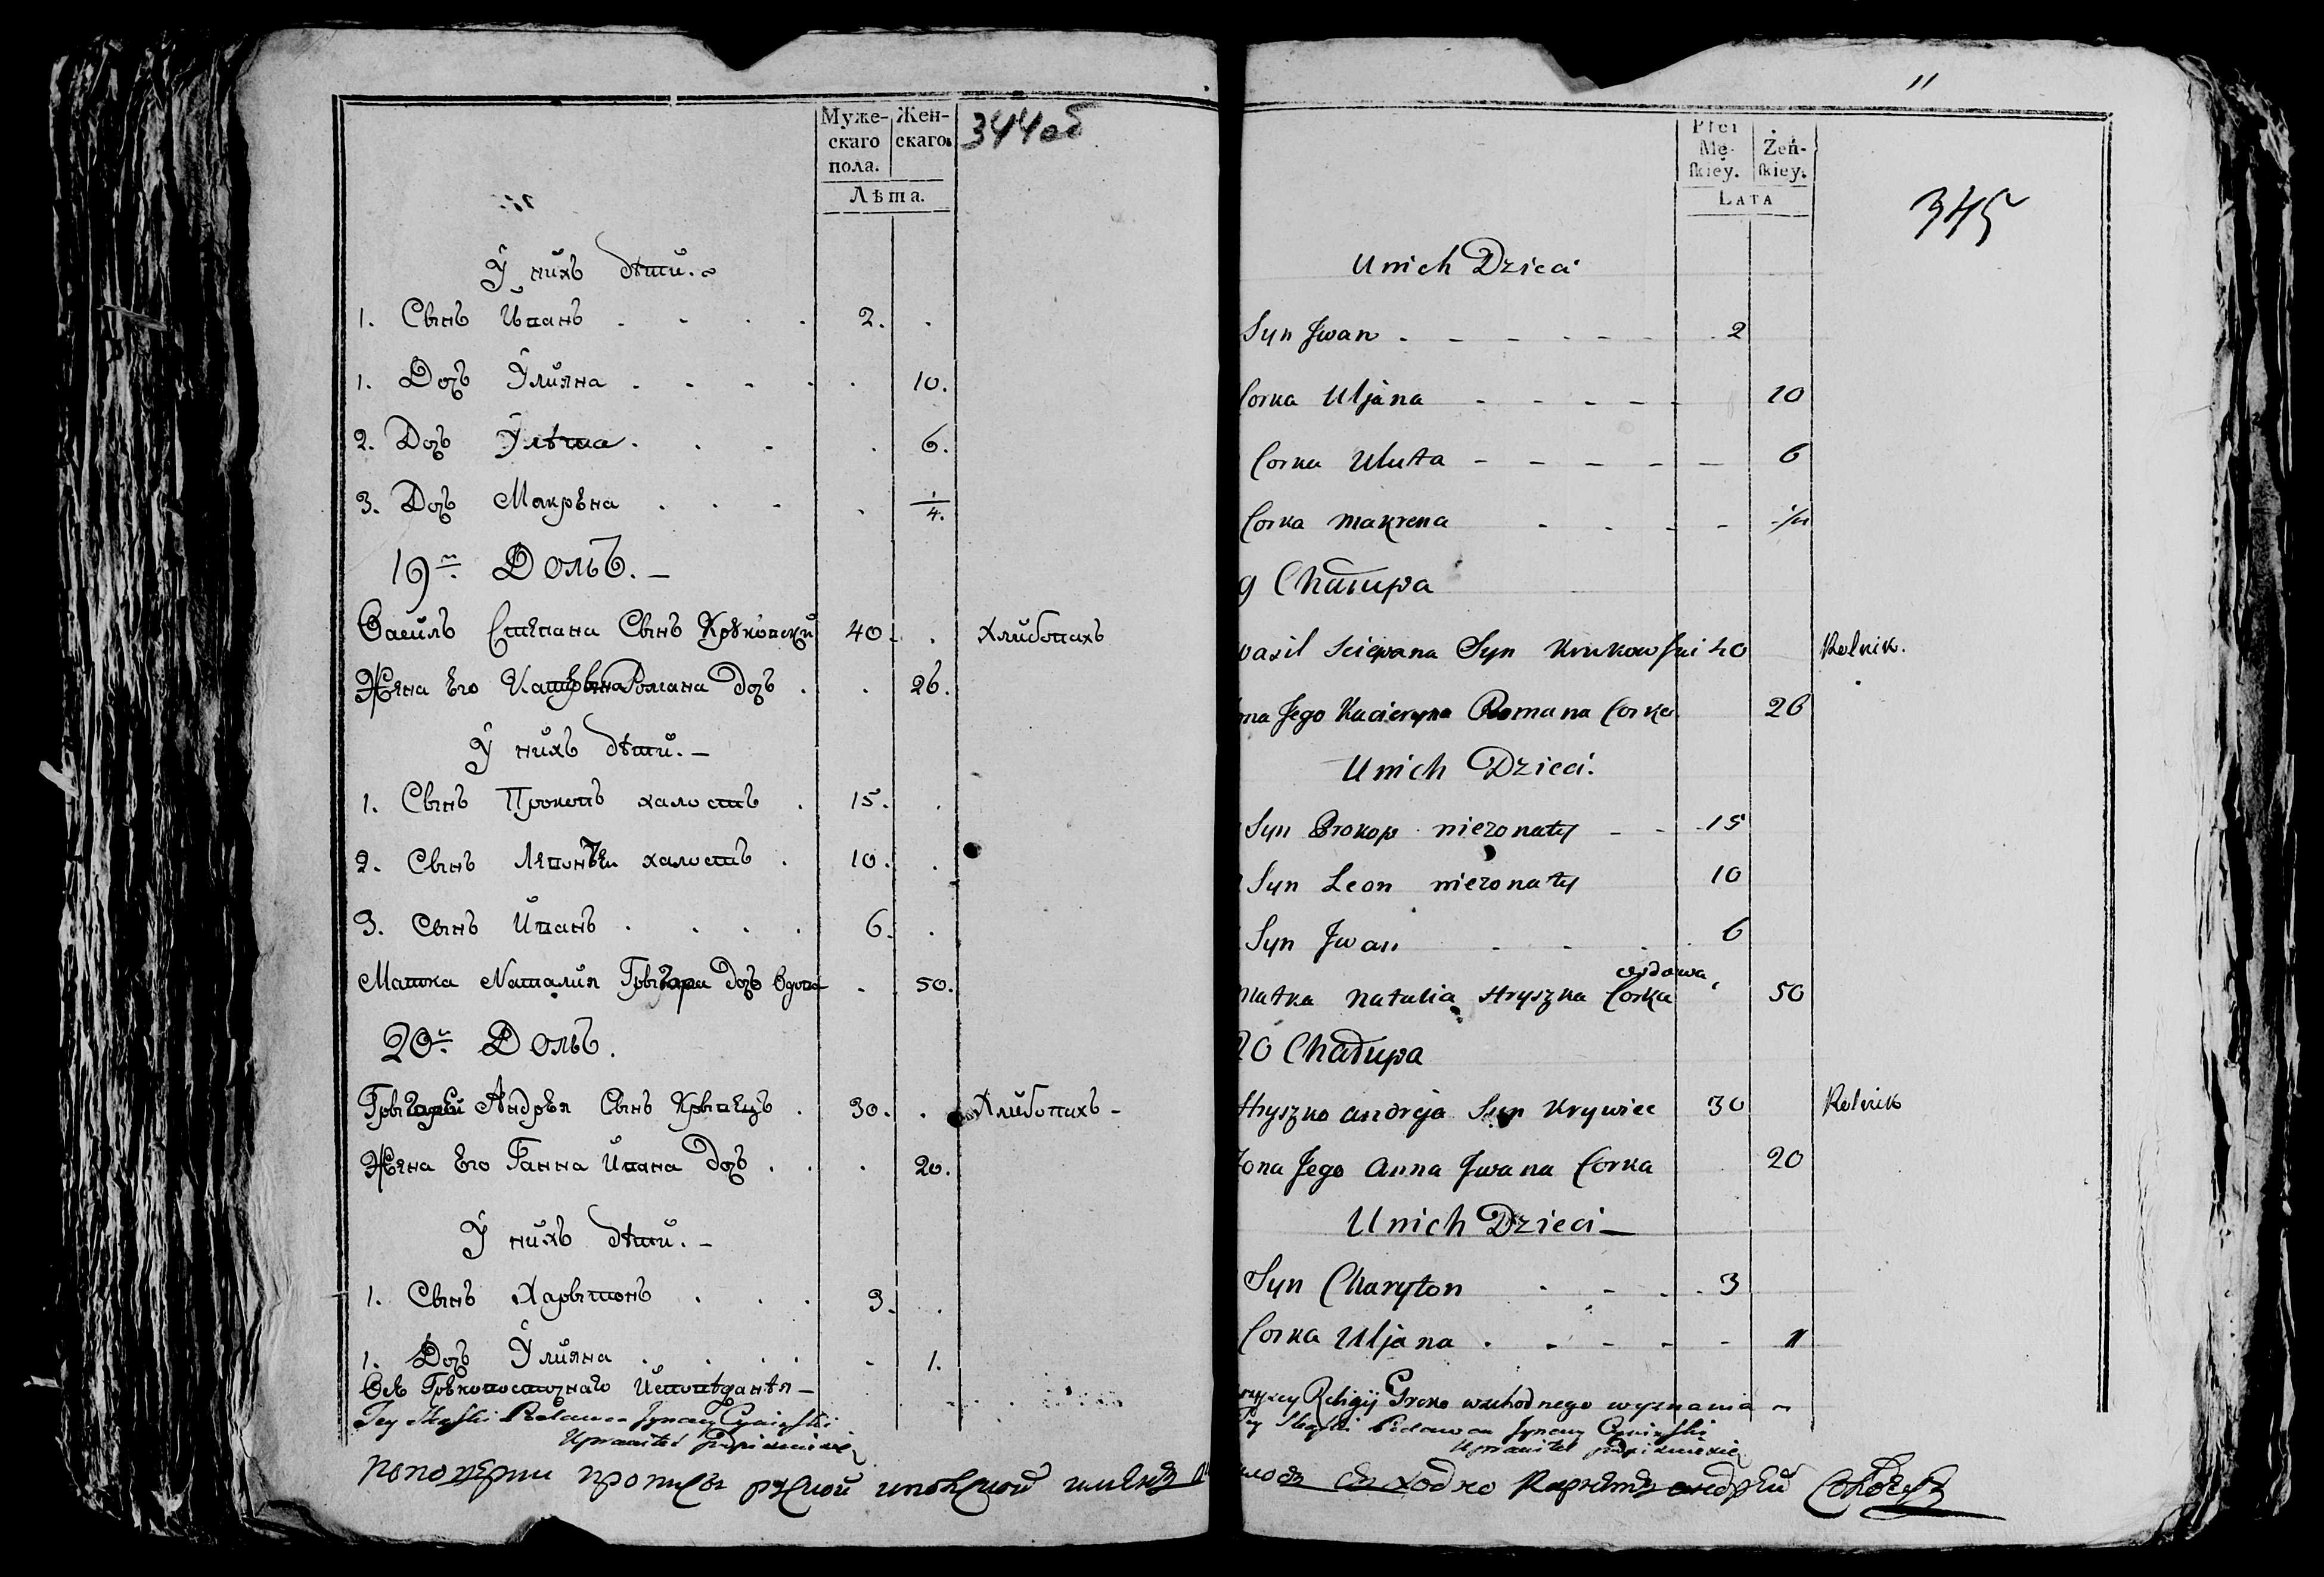 Муже-
скаго
пола.
Жен-
скаго
344об
Лѣта.
У нихъ дѣти.
1. Сынъ Иванъ . . . . 2. .
1. Доч Улияна . . . . . 10.
2. Доч Улѣта . . . . 6.
3. Доч Макрена . . . . 1/4.
19й Домъ. –
Василь Степана Сынъ Круковски 40. . Хлибопахъ
Жена Его Катерына Романа доч . . 26.
У нихъ дѣти. –
1. Сынъ Прокопъ халость . 15. .
2. Сынъ халость . 10. .
3. Сынъ Иванъ . . . . 6. .
Матка Наталия Грыгори доч вдова . 50.
20й Домъ.
Грыгорей Андрея Сынъ Крывецъ . 30. . Хлибопахъ –
Жена Его Ганна Ивана доч . . . 20.
У нихъ дѣти. –
1. Сынъ Харытонъ . . . 3. .
1. Доч Улияна . . . . . 1.
11
Płci
Mę-
ſkiey.
Żeń-
ſkiey.
LATA
345
U nich Dzieci
Syn Jwan . – – – – – 2
Corka Uljana – – – – – 10
Corka Uluta – – – – – 6
Corka makrena . . – – 1/4
9 Chałupa
wasil Sciepana Syn Krukowſki 40 Rolnik.
ona Jego Kacieryna Romana Corka 26
U nich Dzieci.
Syn Prokop niezonaty – – 15
Syn Leon niezonaty 10
Syn Jwan – – . 6
wdowa
Matka natalia Hryszka Corka 50
20 Chałupa
Hryszko andreja Syn Krywiec 30 Rolnik
Zona Jego anna Jwana Corka 20
U nich Dzieci –
Syn Charyton . – . . 3
Corka Uljana . – – – – 1
Religij Greko wschodnego wyznania